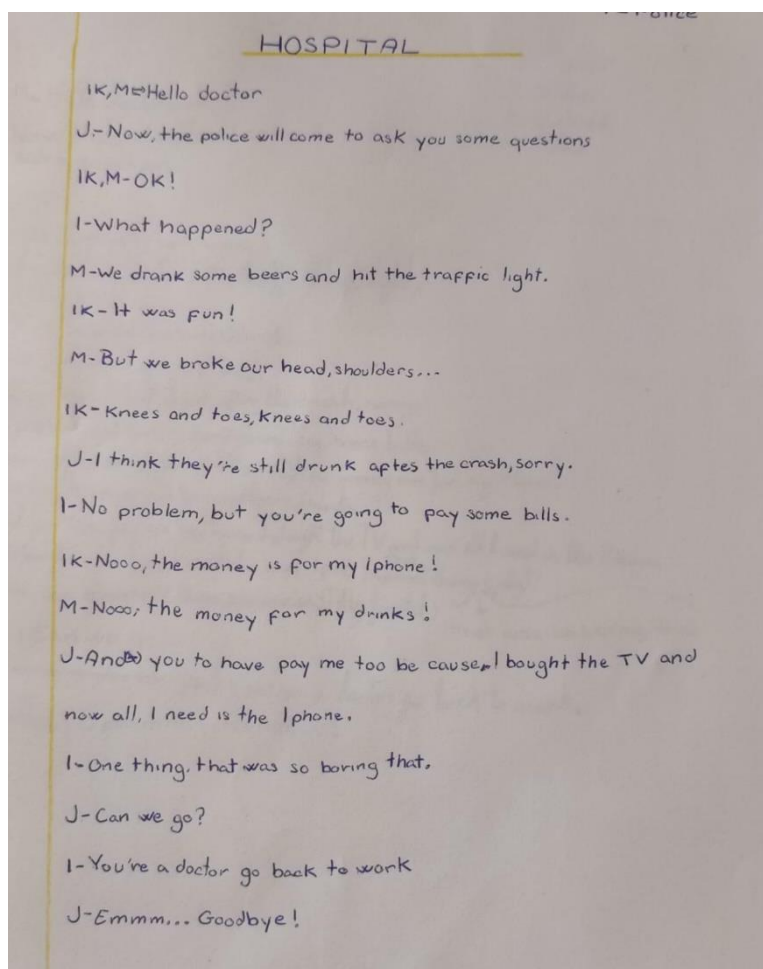 HOSPITAL
IK,M-Hello doctor
J-Now, the police will come to ask you some questions
IK,M-OK!
I-What happened?
M-We drank some beers and hit the traffic light.
IK-It was fun!
M-But we broke our head, shoulders...
IK-Knees and toes, knees and toes.
J-I think they're still drunk aftes the crash, sorry.
I-No problem, but you're going to pay some bills.
IK-Nooo, the money is for my iphone!
M-Nooo, the money for my drinks!
J-And you to have pay me too be cause, I bought the TV and
now all, I need is the Iphone.
I-One thing. that was so boring that.
J-Can we go?
I-You're a doctor go back to work
J-Emmm... Goodbye!